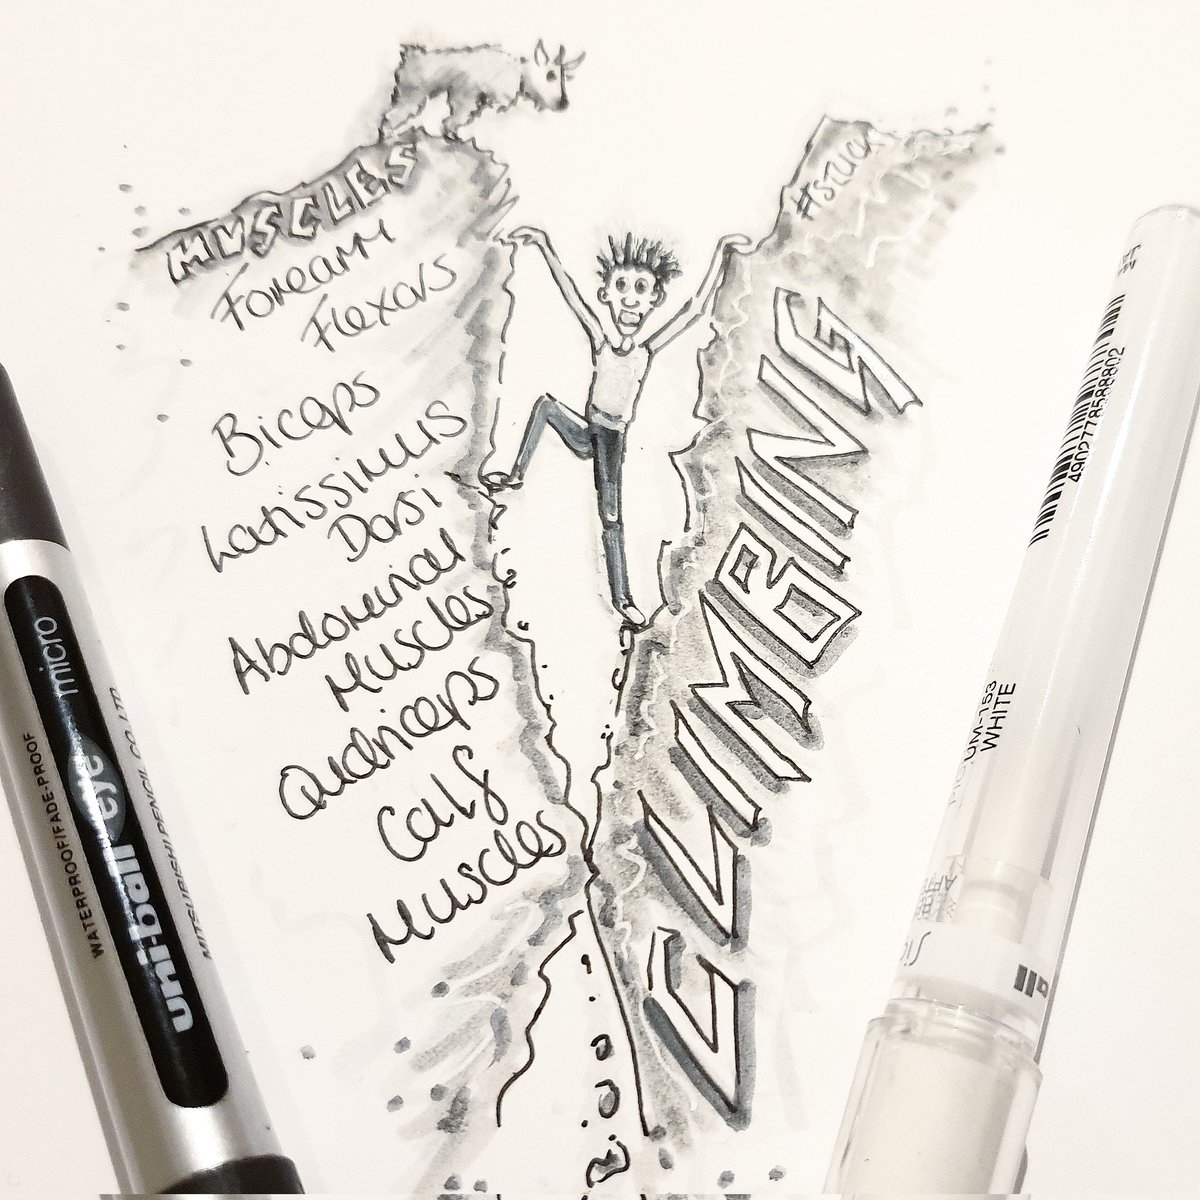 MUSCLES
Forearm
Flexors
Biceps
Latissimus
Dorsi
Abdominal
Muscles
Quadriceps
Calf
Muscles
#STUCK
CLIMBING
uni-ball eye micro
WATERPROOF/FADE-PROOF
MITSUBISHI PENCIL CO. LTD
4902778588802
UM-153
WHITE